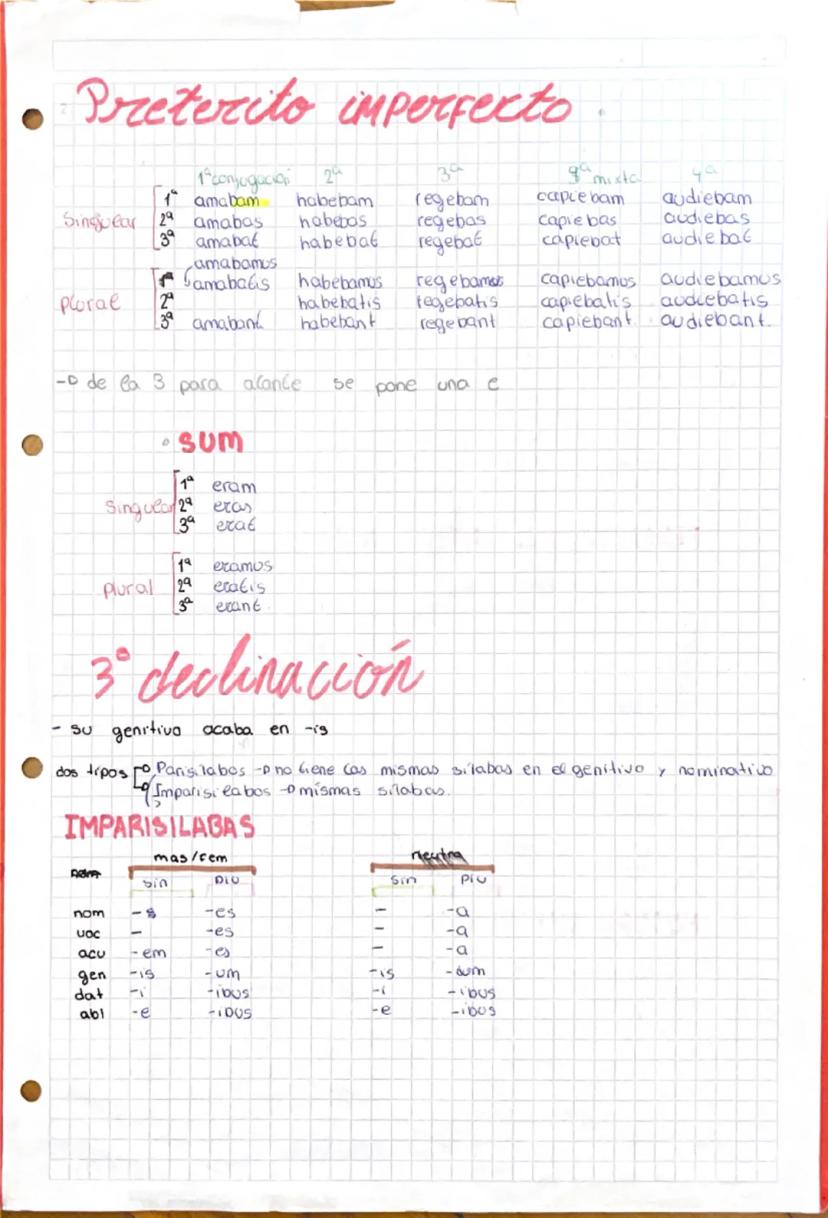 Preterito imperfecto
1ª conjugacion 2ª 3ª 3ª mixta 4ª
Singular 1ª amabam habebam regebam capiebam audiebam
2ª amabas habebas regebas capiebas audiebas
3ª amabat habebat regebat capiebat audiebat
amabamus
plural 1ª amabatis habebamus regebamus capiebamus audiebamus
2ª habebatis regebatis capiebatis audiebatis
3ª amabant habebant regebant capiebant audiebant
→ de la 3 para alante se pone una e
• SUM
Singular 1ª eram
2ª eras
3ª erat
plural 1ª eramus
2ª eratis
3ª erant
3ª declinación
- su genitivo acaba en -is
dos tipos Parisilabos → no tiene las mismas silabas en el genitivo y nominativo
Imparisilabos → mismas silabas.
IMPARISILABAS
mas/fem neutro
sin plu sin plu
nom -s -es - -a
voc - -es - -a
acu -em -es - -a
gen -is -um -is -um
dat -i -ibus -i -ibus
abl -e -ibus -e -ibus